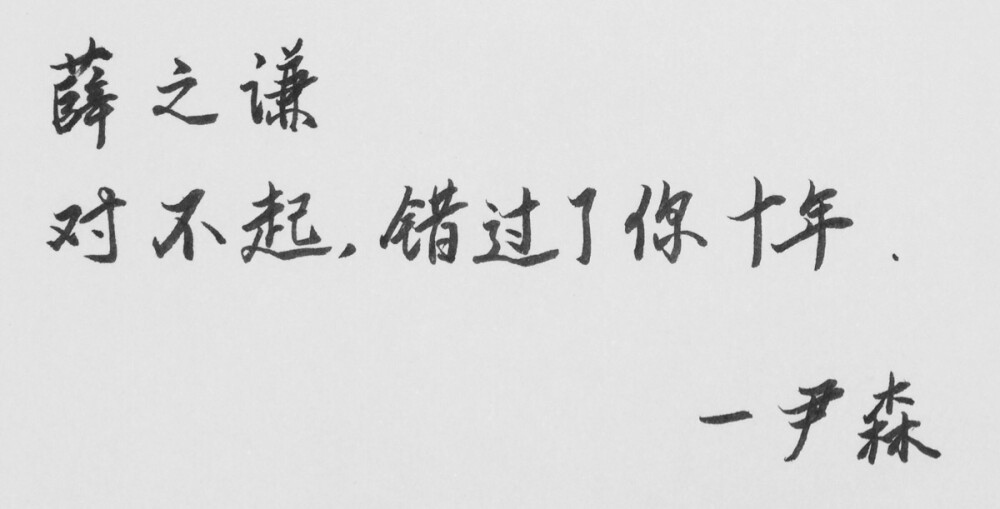 薛之谦
对不起，错过了你十年.
一尹森